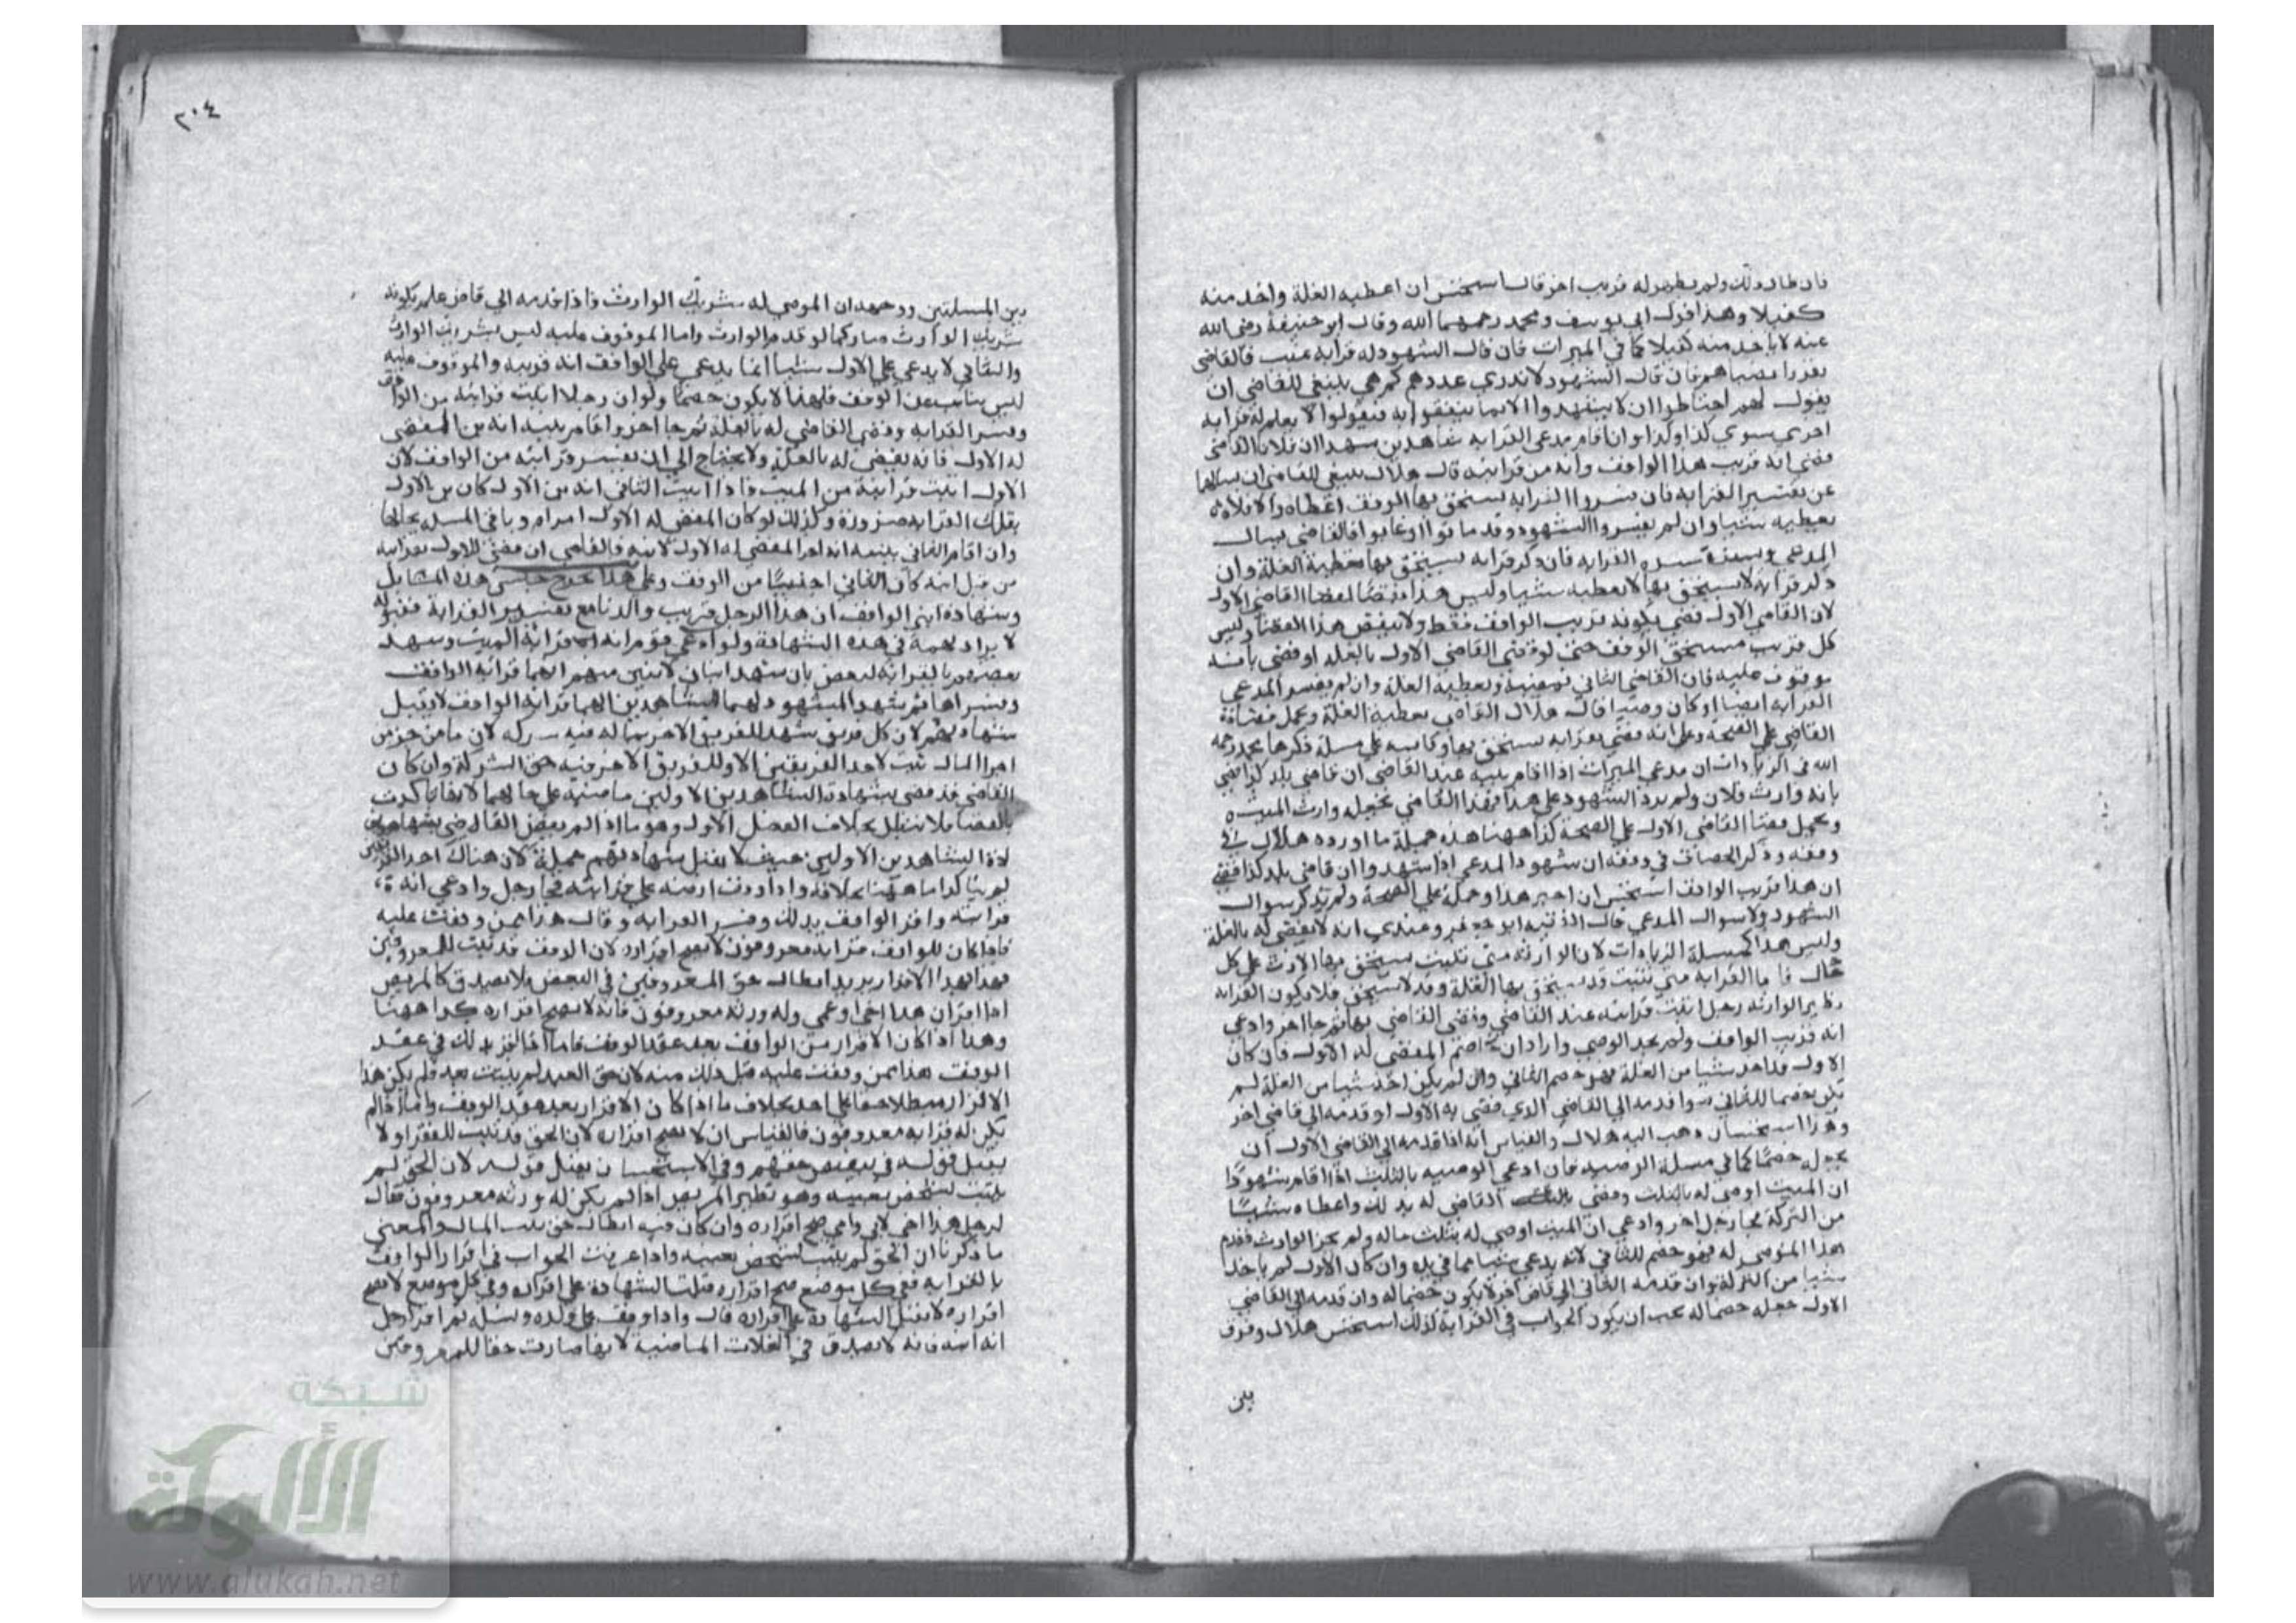 فان طال ذلك ولم يظهر له قريب اخر قال استحسن ان اعطيه الغلة واخذ منه
كفيلا وهذا قول ابي يوسف ومحمد رحمهما الله وقال ابو حنيفة رضي الله
عنه لا ياخذ منه كفيلا كما في الميراث فان قال الشهود له قرابه غيب فالقاضي
فان قال الشهود لا ندري عددهم كم هي ينبغي للقاضي ان
يقول لهم احتاطوا ان لا يشهدوا الا بما فيقولوا لا نعلم له قرابه
اخري سوي كذا وكذا وان اقام مدعي القرابه شاهدين شهدا ان فلانا القاضي
قضي انه قريب هذا الواقف وانه من قرابته قال هلال ينبغي للقاضي ان يسالهما
عن تفسير القرابه فان فسروا القرابه يستحق بها الوقف اعطاه والا فلا
يعطيه شيا وان لم يفسروا الشهود وقد ماتوا او غابوا فالقاضي يسال
المدعي القرابه فان ذكر قرابه يستحق بها يعطيه الغلة وان
ذكر قرابه لا يستحق بها لا يعطيه شيا وليس هذا نقضا لقضا القاضي الاول
لان القاضي الاول قضي بكونه قريب الواقف فقط ولا ينقض هذا القضا وليس
كل قريب مستحق الوقف حتي لو قضي القاضي الاول بالغله او قضي بانه
موقوف عليه فان القاضي الثاني ويعطيه الغلة وان لم يفسر المدعي
القرابه ايضا او كان صبيا قال هلال القاضي يعطيه الغلة ويحمل قضا
القاضي علي الصحة وعلي انه قضي بقرابه يستحق بها وقاسه علي مسلة ذكرها محمد رحمه
الله في الزيادات ان مدعي الميراث اذا اقام بينه عند القاضي ان قاضي بلد كذا قضي
بانه وارث فلان ولم يرد الشهود علي هذا فهذا القاضي يجعله وارث الميت
ويحمل قضا القاضي الاول علي الصحة كذا ههنا هذه جملة ما اورده هلال في
وقفه وذكر الخصاف في وقفه ان شهود المدعي اذا شهدوا ان قاضي بلد كذا قضي
ان هذا قريب الواقف استحسن ان اجيز هذا وحمله علي الصحة ولم يذكر سوال
الشهود ولا سوال المدعي قال الفقيه ابو جعفر وعندي انه لا يقضي له بالغلة
وليس هذا كمسلة الزيادات لان الوارثه متي ثبتت يستحق بها الارث علي كل
حال فاما القرابه متي ثبتت قد يستحق بها الغلة وقد لا يستحق فلا يكون القرابه
نظير الوارثه رجل اثبت قرابته عند القاضي وقضي القاضي بها ثم جا اخر وادعي
انه قريب الواقف ولم يجد الوصي واراد ان يخاصم المقضي له الاول فان كان
الاول قد اخذ شيا من الغلة فهو خصم للثاني وان لم يكن اخذ شيا من الغلة لم
يكن خصما للثاني سوا قدمه الي القاضي الذي قضي به الاول او قدمه الي قاضي اخر
وهذا استحسان ذهب اليه هلال والقياس انه اذا قدمه الي القاضي الاول ان
يجعله خصما كما في مسلة الوصيه فان ادعي الوصيه بالثلث اذا اقام شهودا
ان الميت اوصي له بالثلث وقضي القاضي له بذلك واعطاه شيا
من التركة فجا رجل اخر وادعي ان الميت اوصي له بثلث ماله ولم يجز الوارث فقدم
هذا الموصي له فهو خصم للثاني لانه يدعي شيا مما في يده وان كان الاول لم ياخذ
شيا من التركة وان قدمه الثاني الي قاض اخر لا يكون خصما له وان قدمه الي القاضي
الاول جعله خصما له يجب ان يكون الجواب في القرابة كذلك استحسن هلال وفرق
بين
٢٠٤
بين المسلتين ووجهه ان الموصي له شريك الوارث فاذا قدمه الي قاض علم بكونه
شريك الوارث صار كما لو قدم الوارث واما الموقوف عليه ليس بشريك الوارث
والثاني لا يدعي علي الاول شيا انما يدعي علي الواقف انه قريبه والموقوف عليه
ليس بنايب عن الواقف فلهذا لا يكون خصما ولو ان رجلا اثبت قرابته من الواقف
وفسر القرابه وقضي القاضي له بالغلة ثم جا اخر واقام بينه انه بن المقضي
له الاول فانه يقضي له بالغلة ولا يحتاج الي ان يفسر قرابته من الواقف لان
الاول اثبت قرابته من الميت فاذا اثبت الثاني انه بن الاول كان بن الاول
بتلك القرابه ضرورة وكذلك لو كان المقضي له الاول امراة وباقي المسله بحالها
وان اقام الثاني بينه انه اخو المقضي له الاول لابيه فالقاضي ان قضي للاول بقرابته
من قبل امه كان الثاني اجنبيا من الوقف وعلي هذا يخرج جنس هذه المسايل
وشهادة ابني الواقف ان هذا الرجل قريب والدنا مع تفسير القرابة مقبولة
لا يراد تهمة في هذه الشهادة ولو ادعي قوم انه قرابة الميت وشهد
بعضهم بالقرابة لبعض بان شهد اثنان لاثنين منهم انهما قرابه الواقف
وفسراها ثم شهد المشهود لهما للشاهدين انهما قرابه الواقف لا يقبل
شهادتهم لان كل فريق شهد للفريق الاخر بما له فيه شركه لان ما من جز من
اجزا المال ثبت لاحد الفريقين الا وللفريق الاخر فيه حق الشركة وان كان
القاضي قد قضي بشهادة الشاهدين الاولين ما صنيه علي حالهما لانها تاكدت
بالقضا فلا تبطل بخلاف الفصل الاول وهو ما اذا لم يقض القاضي بشهادة
الشاهدين الاولين حيث لا يقبل شهادتهم جملة لان هناك احد
لم يتاكد اما ههنا بخلافه واذا وقف ارضه علي قرابته فجا رجل وادعي انه
قرابته واقر الواقف بذلك وفسر القرابه وقال هذا ممن وقفت عليه
فاذا كان للواقف قرابه معروفون لا يصح اقراره لان الوقف قد ثبت للمعروفين
فهذا بهذا الاقرار يريد ابطال حق المعروفين في البعض فلا يصدق كالمريض
اذا اقر ان هذا اخي او عمي وله ورثه معروفون فانه لا يصح اقراره كذا ههنا
وهذا اذا كان الاقرار من الواقف بعد عقد الوقف فاما اذا اقر بذلك في عقد
الوقف هذا ممن وقفت عليه قبل ذلك منه لان حق الغير لم يثبت بعد فلم يكن هذا
الاقرار مبطلا حقا علي احد بخلاف ما اذا كان الاقرار بعد عقد الوقف واما اذا لم
يكن له قرابه معروفون فالقياس ان لا يصح اقراره لان الحق قد ثبت للفقرا ولا
يقبل قوله في تنقيص حقهم وفي الاستحسان يقبل قوله لان الحق لم
يثبت لشخص بعينه وهو نظير المريض اذا لم يكن له ورثه معروفون فقال
لرجل هذا اخي لابي وامي صح اقراره وان كان فيه ابطال حق بيت المال والمعني
ما ذكرنا ان الحق لم يثبت لشخص بعينه واذا عرفت الجواب في اقرار الواقف
بالقرابه ففي كل موضع صح اقراره قبلت الشهادة علي اقراره وفي كل موضع لا يصح
اقراره لا تقبل الشهادة علي اقراره قال واذا وقف علي ولده ونسله ثم اقر لرجل
انه ابنه فانه لا يصدق في الغلات الماضية لانها صارت حقا للمعروفين
شبكة
الألوكة
www.alukah.net